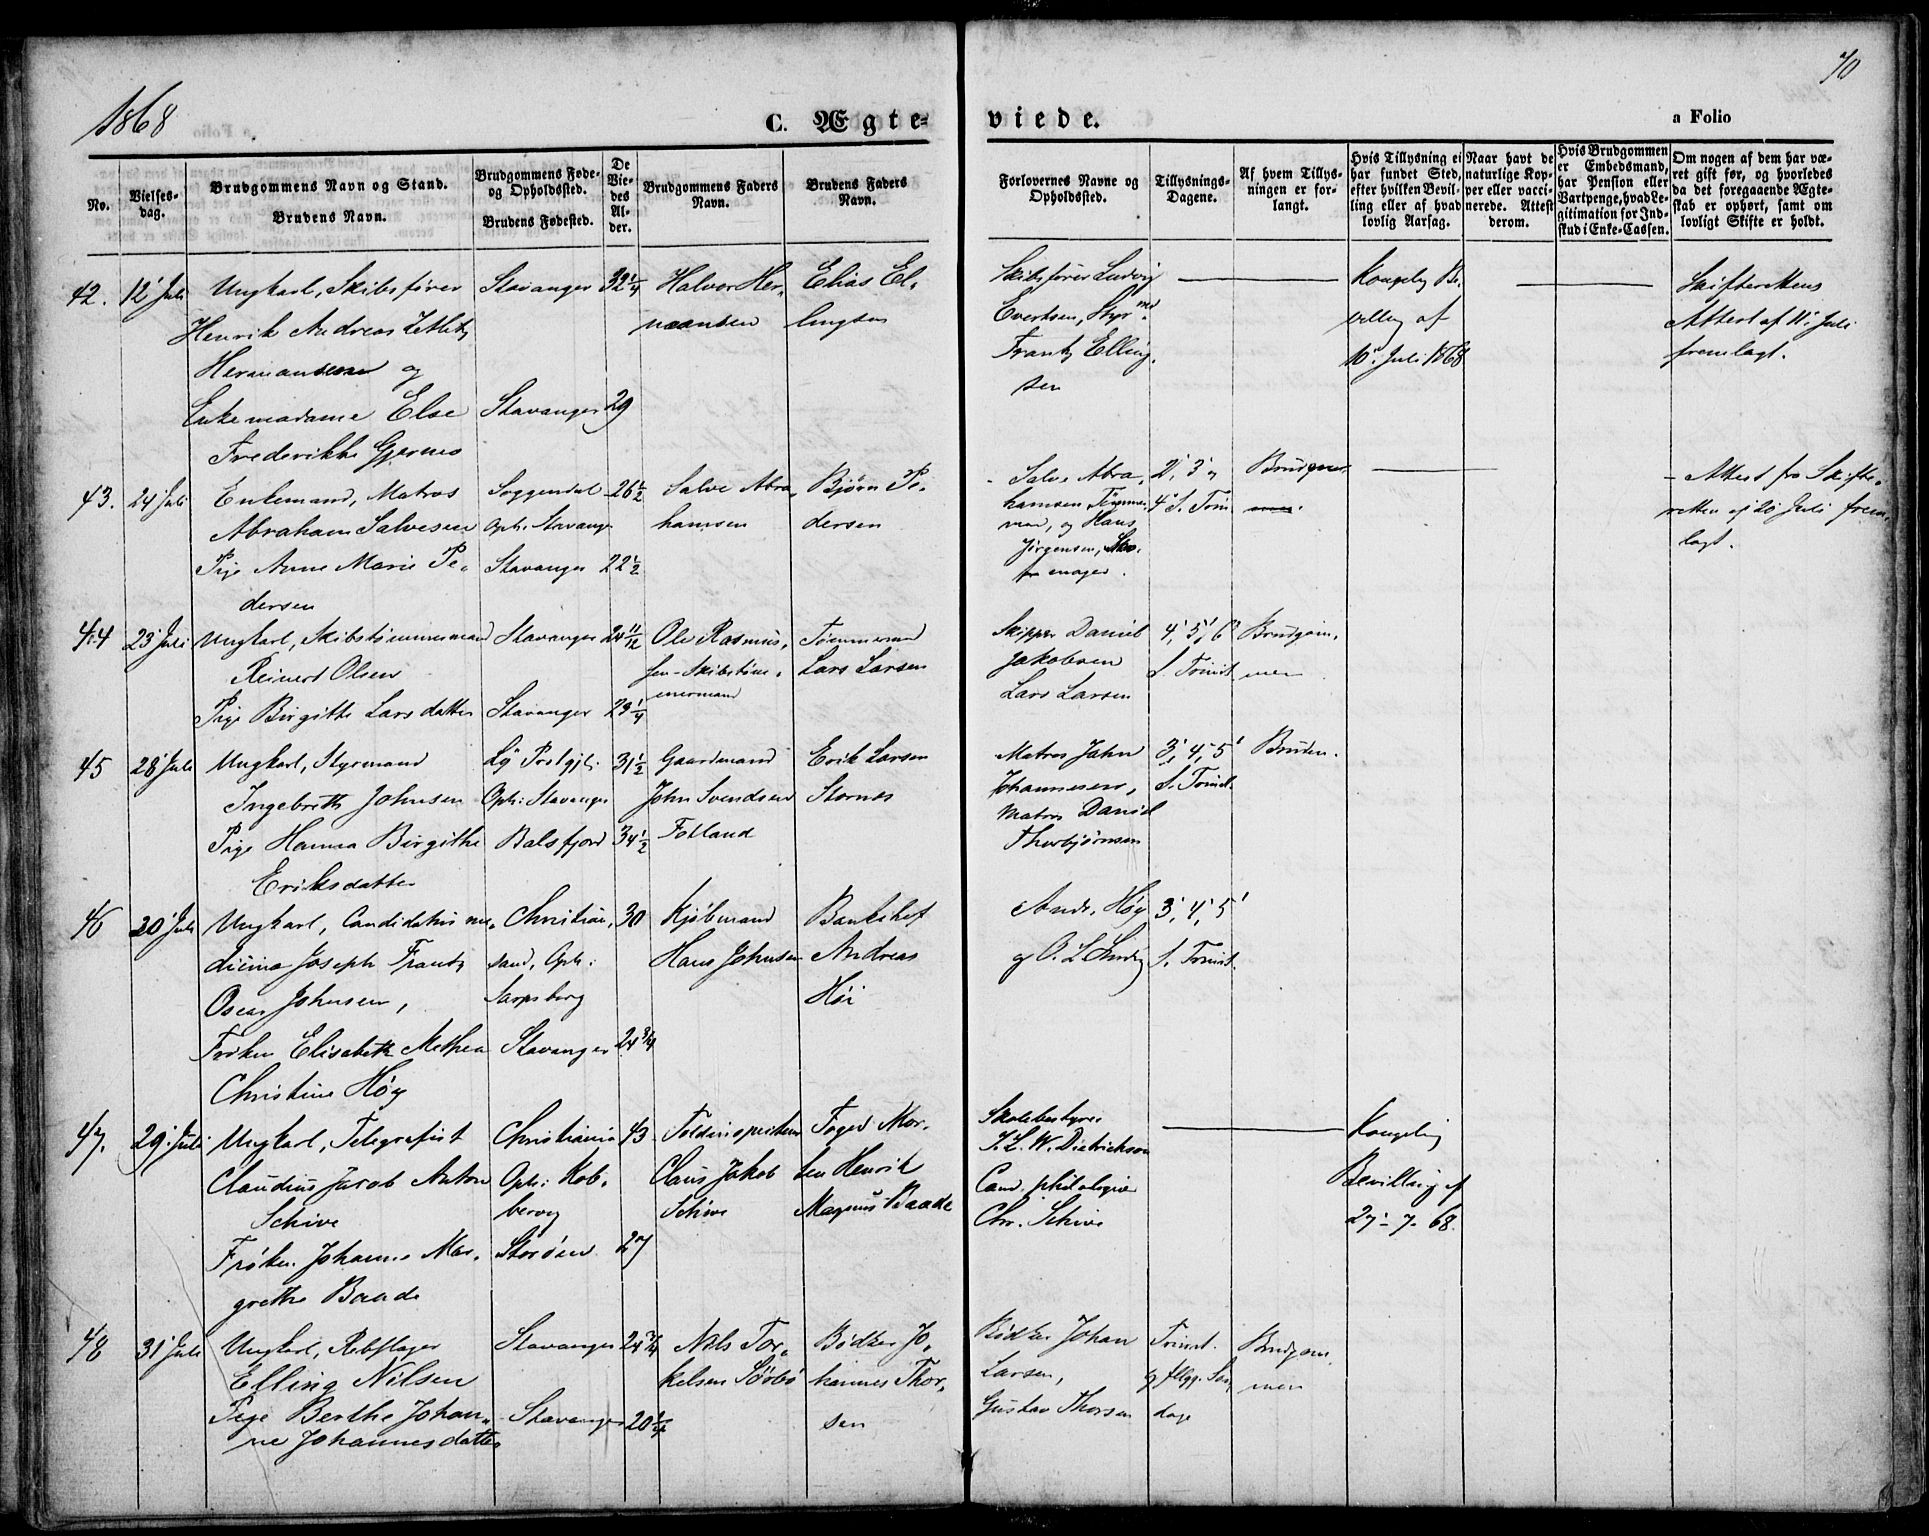 70
1868
C. Ægte-
viede.
a Folio
No.
Vielses-
dag.
Brudgommens Navn og Stand.
Brudens Navn.
Brudgommens Føde-
og Opholdssted.
Brudens Fødested.
De
Vie-
des
Al-
der.
Brudgommens Faders
Navn.
Brudens Faders
Navn.
Forlovernes Navne og
Opholdssted.
Tillysnings-
Dagene.
Af hvem Tillys-
ningen er for-
langt.
Hvis Tillysning ei
har fundet Sted,
efter hvilken Bevil-
ling eller af hvad
lovlig Aarsag.
Naar havt de
naturlige Kop-
per eller vacci-
nerede. Attest
derom.
Hvis Brudgommen
er Embedsmand,
har Pension eller
Vartpenge, hvad Le-
gitimation for Ind-
skud i Enke-Cassen.
Om nogen af dem har væ-
ret gift før, og hvorledes
da det foregaaende Ægte-
skab er ophørt, samt om
lovligt Skifte er holdt.
42.
12' Juli
Ungkarl, Skibsfører
Henrik Andreas Zetlitz
Hermansen og
Enkemadame Else
Frederikke Gjernes
Stavanger
Stavanger
32 1/4
29
Halvor Her-
mansen
Elias El-
lingsen
Skibsfører Ludvig
Evertsen, Styrmd
Frantz Elling-
sen
Kongelig Be-
villing af
10' Juli 1868
Skifterettens
Attest af 11' Juli
fremlagt.
43.
24' Juli
Enkemand, Matros
Abraham Salvesen
Pige Anne Marie Pe-
dersen
Soggendal
Oph: Stavanger
Stavanger
26 1/2
22 1/2
Salve Abra-
hamsen
Bjørn Pe-
dersen
Salve Abra-
hamsen Tømmer-
mand, og Hans
Jørgensen, Sko-
mager.
2', 3' og
4' S. Trin.
Brudgom-
men.
Attest fra Skifte-
retten af 20' Juli frem-
lagt.
44
23' Juli
Ungkarl, Skibstømmermand
Reinert Olsen
Pige Birgitte Larsdatter
Stavanger
Stavanger
24 11/12
29 1/4
Ole Rasmus-
sen Skibstøm-
mermand
Tømmermand
Lars Larsen
Skipper Daniel
Jakobsen
Lars Larsen
4', 5', 6'
S. Trinit.
Brudgom-
men
45
28' Juli
Ungkarl, Styrmand
Ingebreth Johnsen
Pige Hanna Birgithe
Eriksdatter
Lÿ Præstgjl.
Oph: Stavanger
Balsfjord
31 1/2
34 1/2
Gaardmand
John Svendsen
Folland
Erik Larsen
Stornes
Matros Jahn
Johannesen,
Matros Daniel
Thorbjørnsen
3', 4', 5'
S. Trinit.
Bruden.
46
20' Juli
Ungkarl, Candidatus me-
dicina Joseph Frantz
Oscar Johnsen,
Frøken Elisabeth Mathea
Christine Høy
Christian-
sand, Oph:
Sarpsborg
Stavanger
30
24 3/4
Kjøbmand
Hans Johnsen
Bankchef
Andreas
Høi
Andr. Høy
og O. L.
3', 4', 5'
S. Trinit.
47.
29' Juli
Ungkarl, Telegrafist
Claudius Jacob Anton
Schive
Frøken Johanne Mar-
grethe Baade
Christiania
Oph: Kob-
bervig
Storøen
43
27
Toldinspecteur
Claus Jakob
Schive
Foged Mor-
ten Henrik
Magnus Baade
Skolebestyrer
J. L. W. Dietrichson
Cand. philologiæ
Chr. Schive
Kongelig
Bevilling af
27'-7-68.
48
31' Juli
Ungkarl, Rebslager
Elling Nilsen
Pige Berthe Johan-
ne Johannesdatter
Stavanger
Stavanger
24 3/4
20 3/4
Nils Tor-
kelsen Sörbö
Bödker Jo-
hannes Thor-
sen
Bödker Johan
Larsen,
Gustav Thorsen
Trinit.
og flgg. Søn-
dage
Brudgom-
men